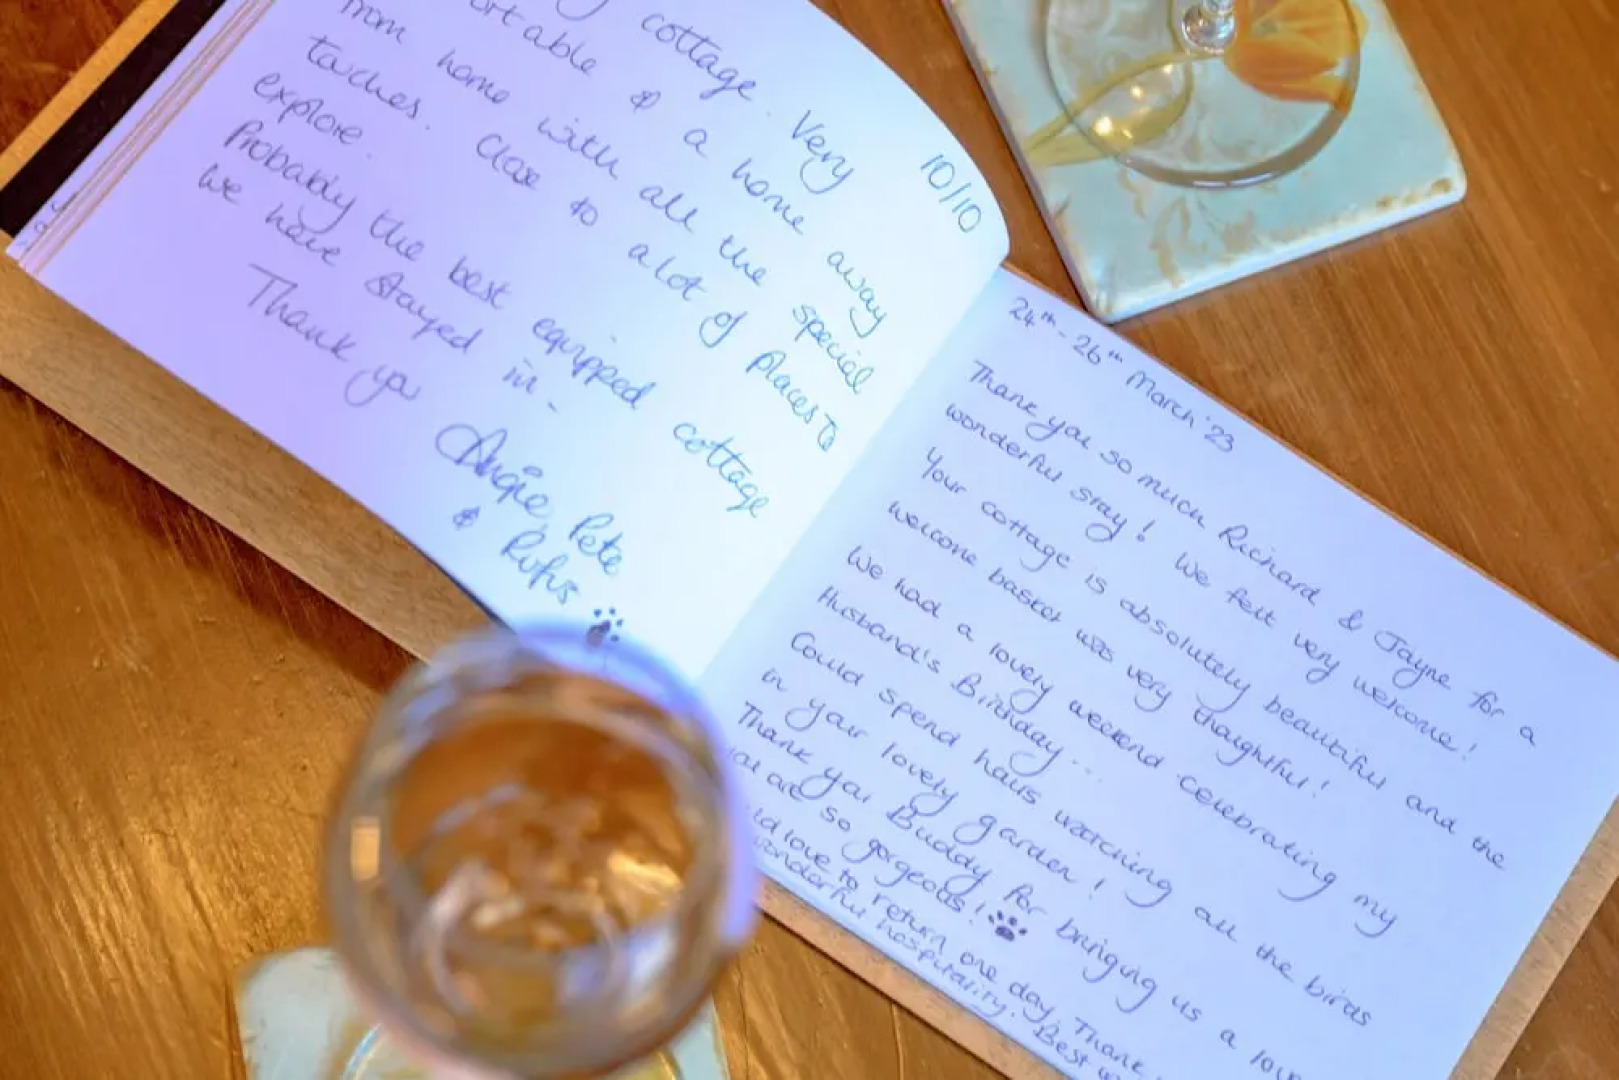 cottage. Very
ortable & a home away
from home with all the special
touches. Close to a lot of places to
explore.
Probably the best equipped cottage
we have stayed in.
Thank you
Angie, Pete
& Rufus
10/10
24th - 26th March '23
Thank you so much Richard & Jayne for a
wonderful stay! We felt very welcome!
Your cottage is absolutely beautiful and the
welcome basket was very thoughtful!
We had a lovely weekend celebrating my
Husband's Birthday...
Could spend hours watching all the birds
in your lovely garden!
Thank you Buddy for bringing us a love
you are so gorgeous!
ld love to return one day. Thank
wonderful hospitality. Best w